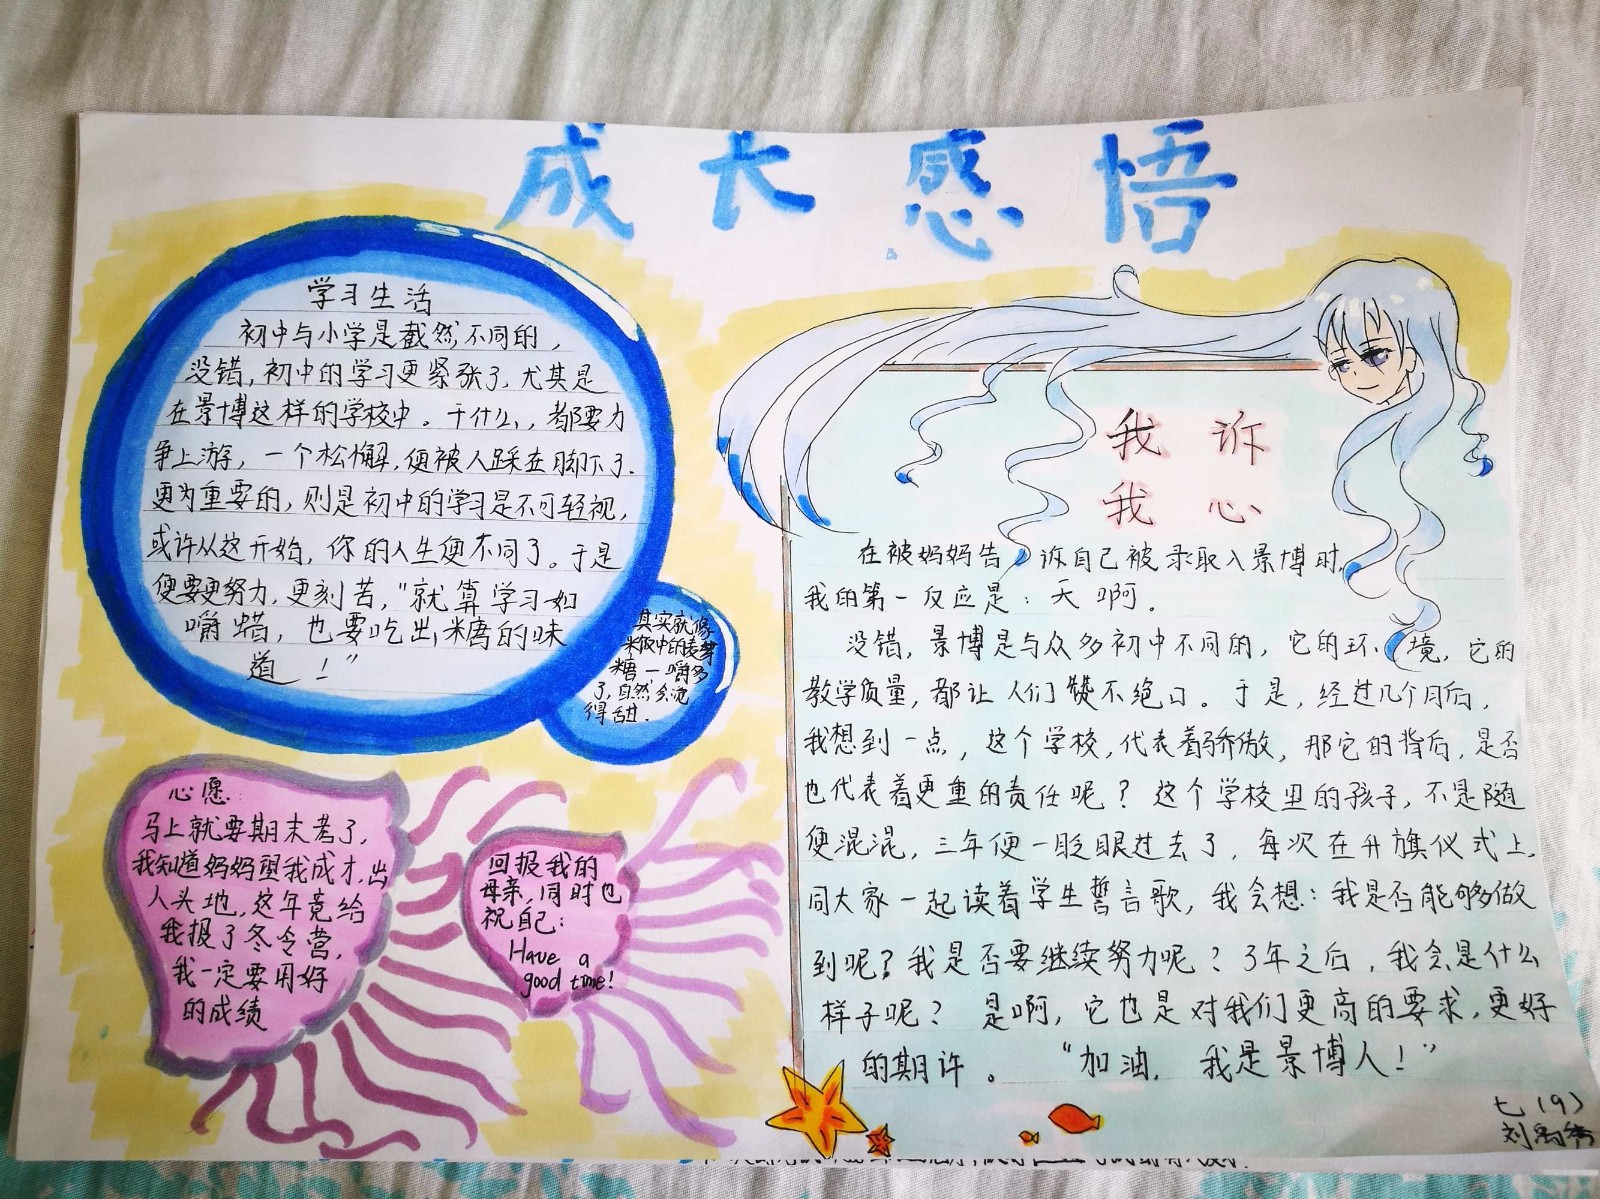 成长感悟
学习生活
初中与小学是截然不同的，
没错，初中的学习更紧张了，尤其是
在景博这样的学校中。干什么，都要力
争上游，一个松懈，便被人踩在脚下了．
更为重要的，则是初中的学习是不可轻视，
或许从这开始，你的人生便不同了。于是
便要更努力，更刻苦，"就算学习如
嚼蜡，也要吃出糖的味
道！"
其实就像
米饭中的麦芽
糖一嚼多
了，自然会觉
得甜．
心愿：
马上就要期末考了，
我知道妈妈望我成才，出
人头地，这年竟给
我报了冬令营，
我一定要用好
的成绩
回报我的
母亲，同时也
祝自己：
Have a
good time!
我诉
我心
在被妈妈告诉自己被录取入景博时，
我的第一反应是：天啊。
没错，景博是与众多初中不同的，它的环境，它的
教学质量，都让人们赞不绝口。于是，经过几个月后，
我想到一点，这个学校，代表着骄傲，那它的背后，是否
也代表着更重的责任呢？这个学校里的孩子，不是随
便混混，三年便一眨眼过去了，每次在升旗仪式上，
同大家一起读着学生誓言歌，我会想：我是否能够做
到呢？我是否要继续努力呢？3年之后，我会是什么
样子呢？是啊，它也是对我们更高的要求，更好
的期许。"加油，我是景博人！"
七（9）
刘禹